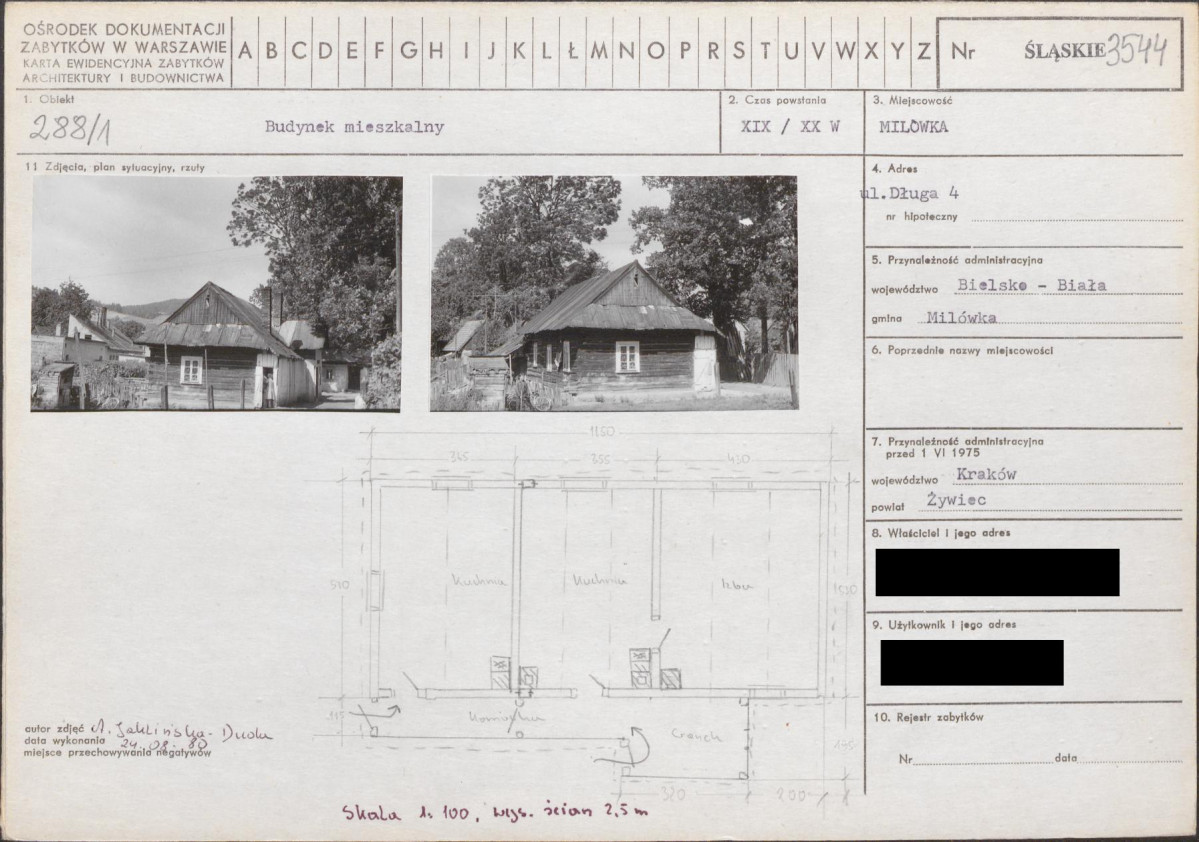 OŚRODEK DOKUMENTACJI
ZABYTKÓW W WARSZAWIE
KARTA EWIDENCYJNA ZABYTKÓW
ARCHITEKTURY I BUDOWNICTWA
A B C D E F G H I J K L Ł M N O P R S T U V W X Y Z
Nr ŚLĄSKIE 3544
1. Obiekt
288/1 Budynek mieszkalny
2. Czas powstania
XIX / XX W
3. Miejscowość
MILÓWKA
11 Zdjęcia, plan sytuacyjny, rzuty
4. Adres
ul.Długa 4
nr hipoteczny
5. Przynależność administracyjna
województwo Bielsko - Biała
gmina Milówka
6. Poprzednie nazwy miejscowości
7. Przynależność administracyjna
przed 1 VI 1975
województwo Kraków
powiat Żywiec
8. Właściciel i jego adres
9. Użytkownik i jego adres
10. Rejestr zabytków
Nr data
1150
365 355 430
510
Kuchnia Kuchnia Izba
320 200
autor zdjęć
data wykonania 24.08.80
miejsce przechowywania negatywów
Skala 1:100, wys. ścian 2,5 m